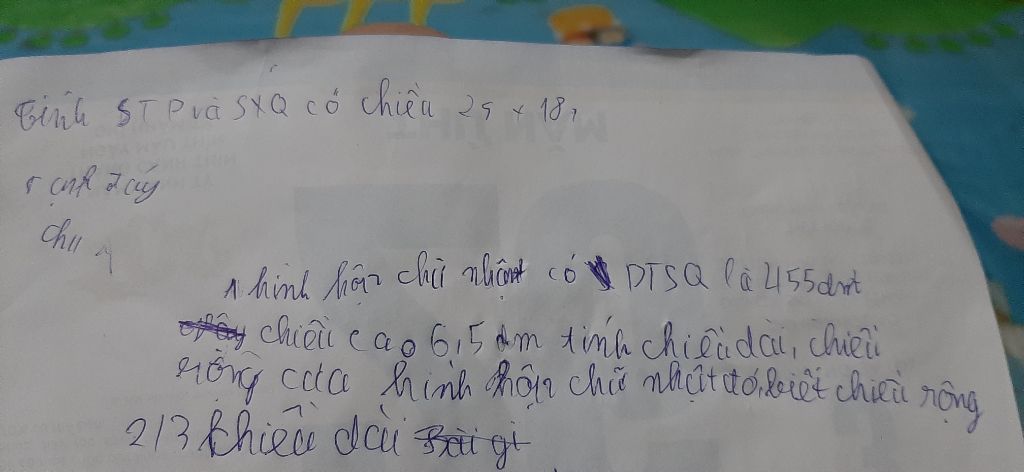 Tính STP và SXQ có chiều 25 + 18,
cạnh đáy
1 hình hộp chữ nhật có DTSQ là 455dm
chiều cao 6,5 dm tính chiều dài, chiều
rộng của hình hộp chữ nhật đó, biết chiều rộng
2/3 chiều dài